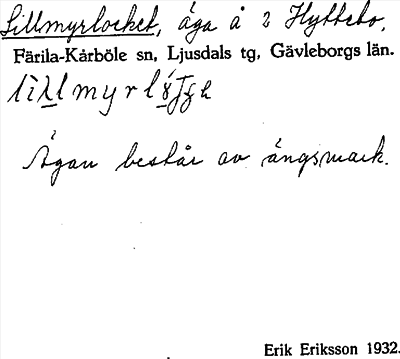 Lillmyrlocket, äga å 2 Hyttebo,
Färila-Kårböle sn, Ljusdals tg, Gävleborgs län.
Ägan består av ängsmark.
Erik Eriksson 1932.